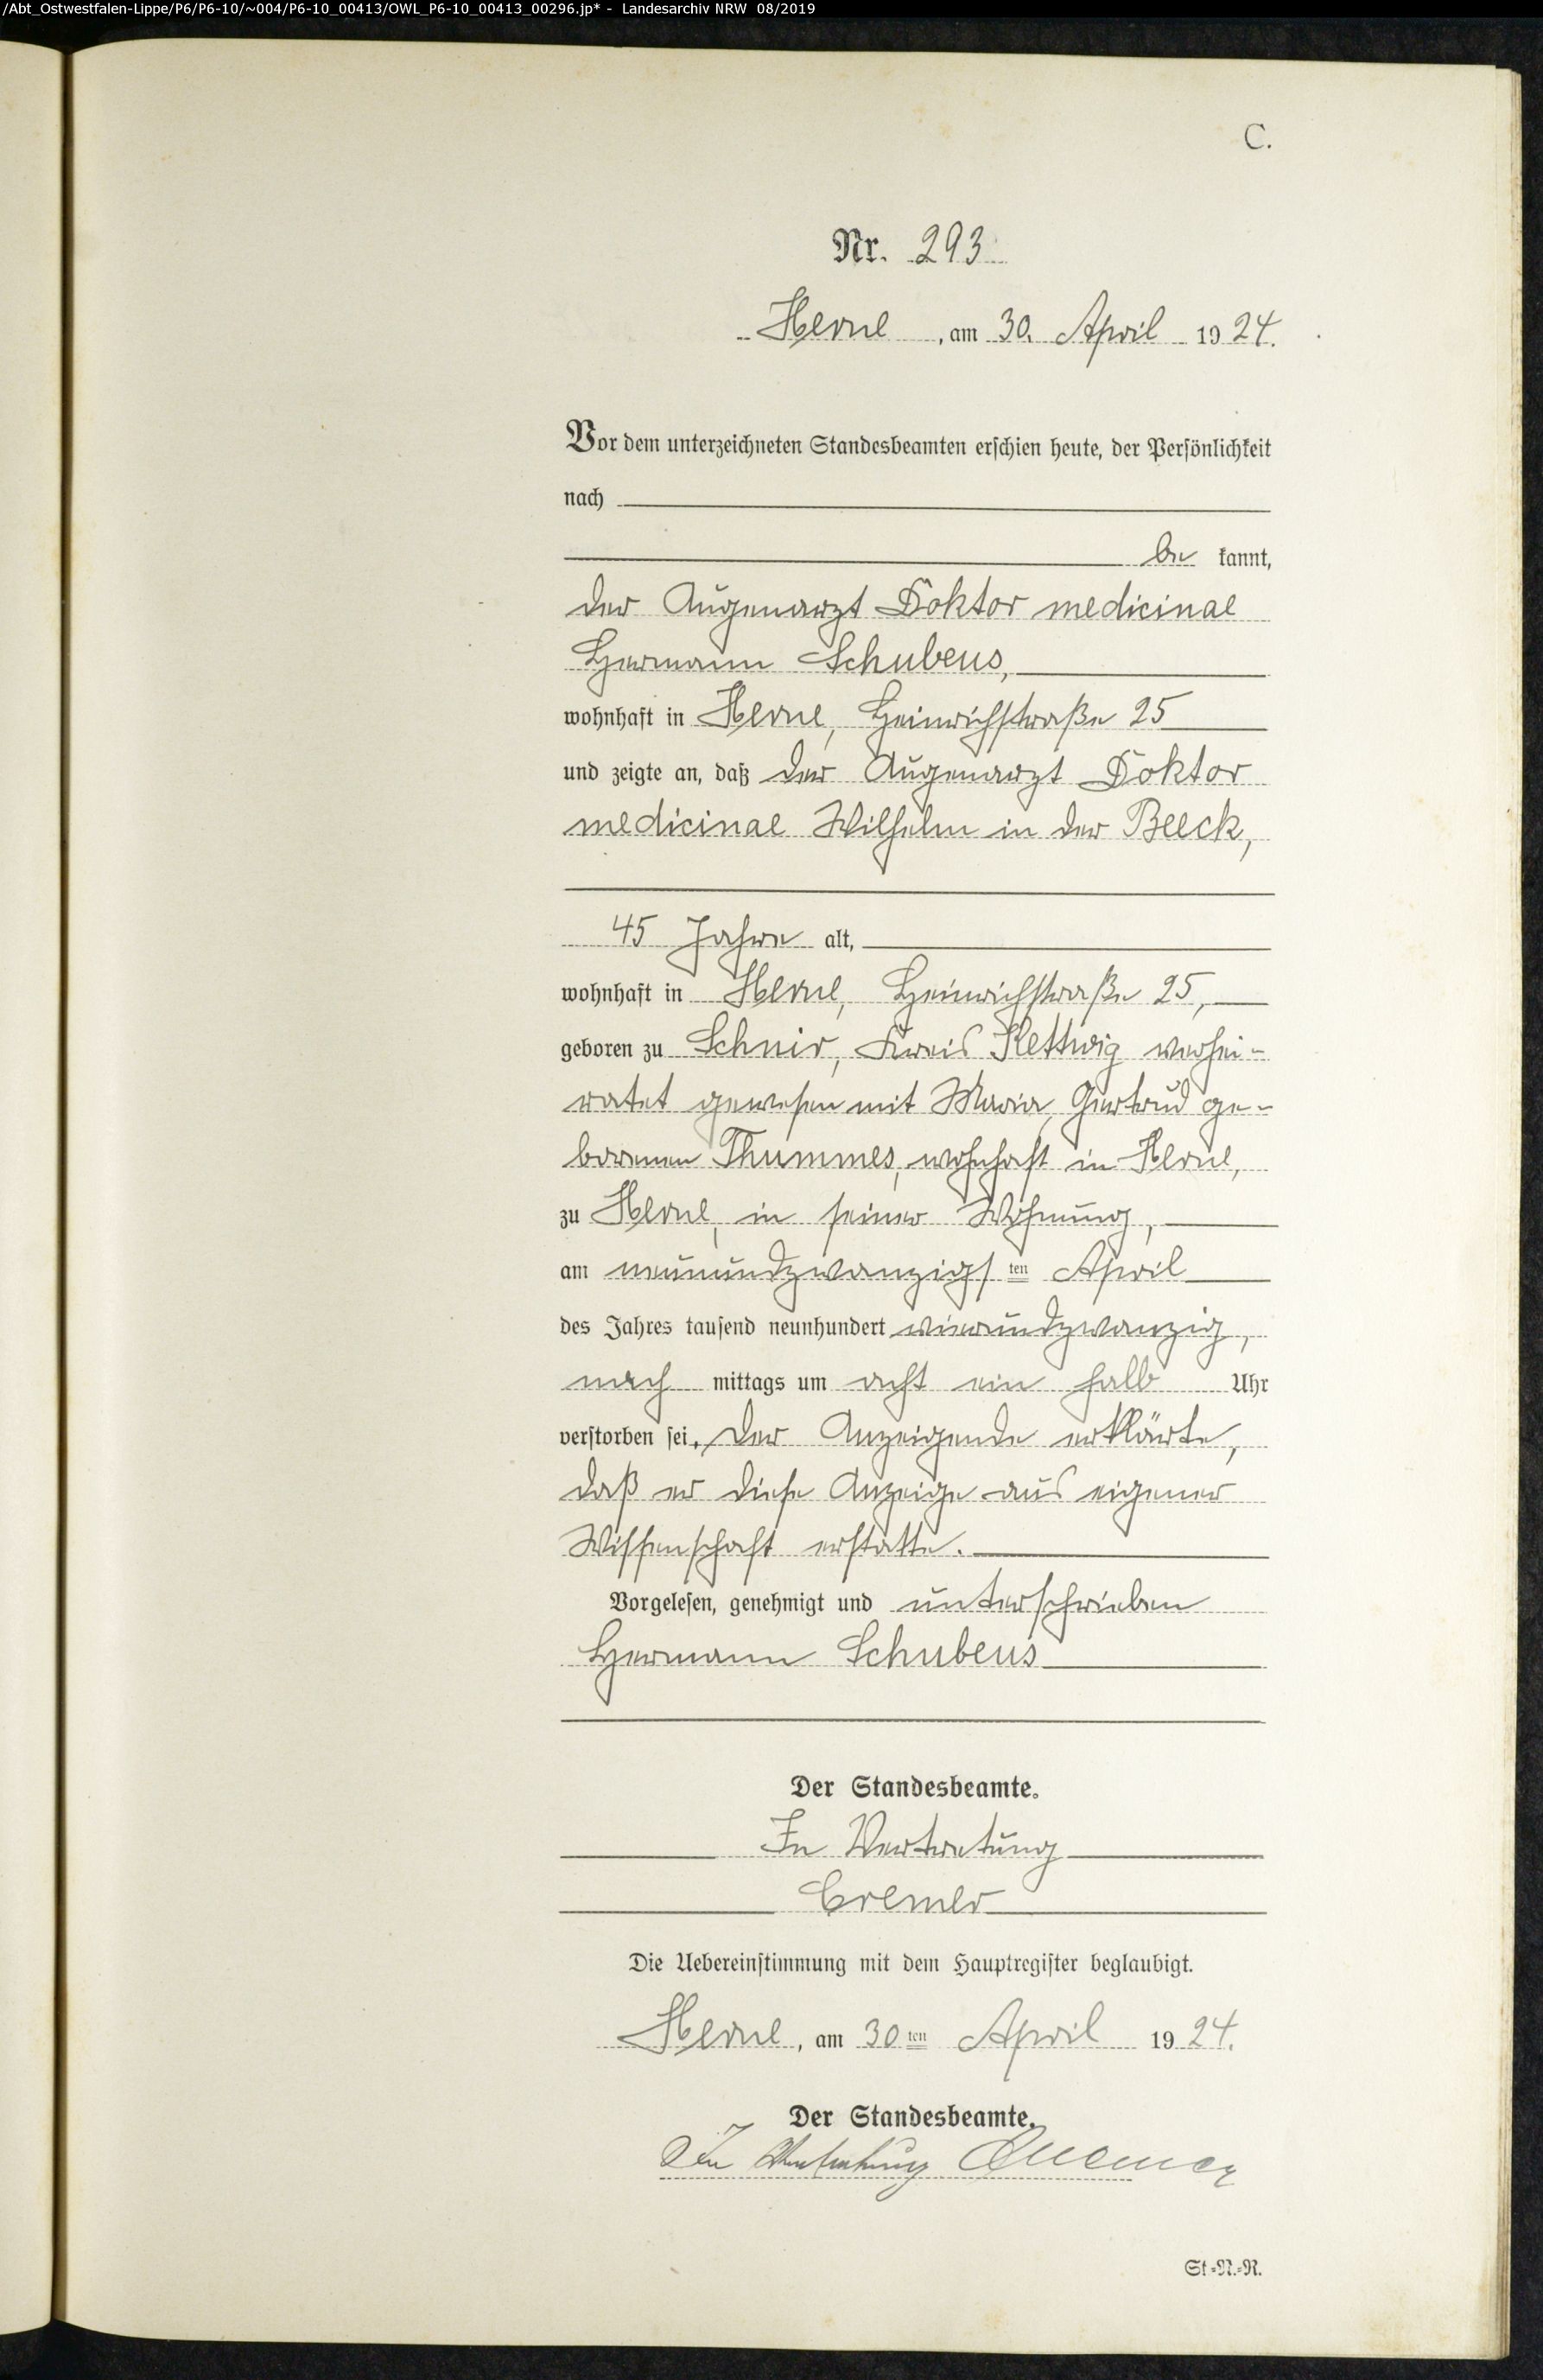 /Abt_Ostwestfalen-Lippe/P6/P6-10/~004/P6-10_00413/OWL_P6-10_00413_00296.jp* - Landesarchiv NRW 08/2019
C.
Nr. 293
Herne, am 30. April 1924.
Vor dem unterzeichneten Standesbeamten erschien heute, der Persönlichkeit
nach
be kannt,
der Augenarzt Doktor medicinae
Hermann Schubeus,
wohnhaft in Herne, Heinrichstraße 25
und zeigte an, daß der Augenarzt Doktor
medicinae Wilhelm in der Beeck,
45 Jahre alt,
wohnhaft in Herne, Heinrichstraße 25,
geboren zu Schuir, Kreis Kettwig verhei-
ratet gewesen mit Maria, Gertrud ge-
borenen Thummes, wohnhaft in Herne,
zu Herne, in seiner Wohnung,
am neunundzwanzigsten April
des Jahres tausend neunhundert vierundzwanzig,
nach mittags um acht ein halb Uhr
verstorben sei. Der Anzeigende erklärte,
daß er diese Anzeige aus eigener
Wissenschaft erstatte.
Vorgelesen, genehmigt und unterschrieben
Hermann Schubeus
Der Standesbeamte.
In Vertretung
Cremer
Die Uebereinstimmung mit dem Hauptregister beglaubigt.
Herne, am 30ten April 1924.
Der Standesbeamte.
In Vertretung Cremer
St.-N.-R.